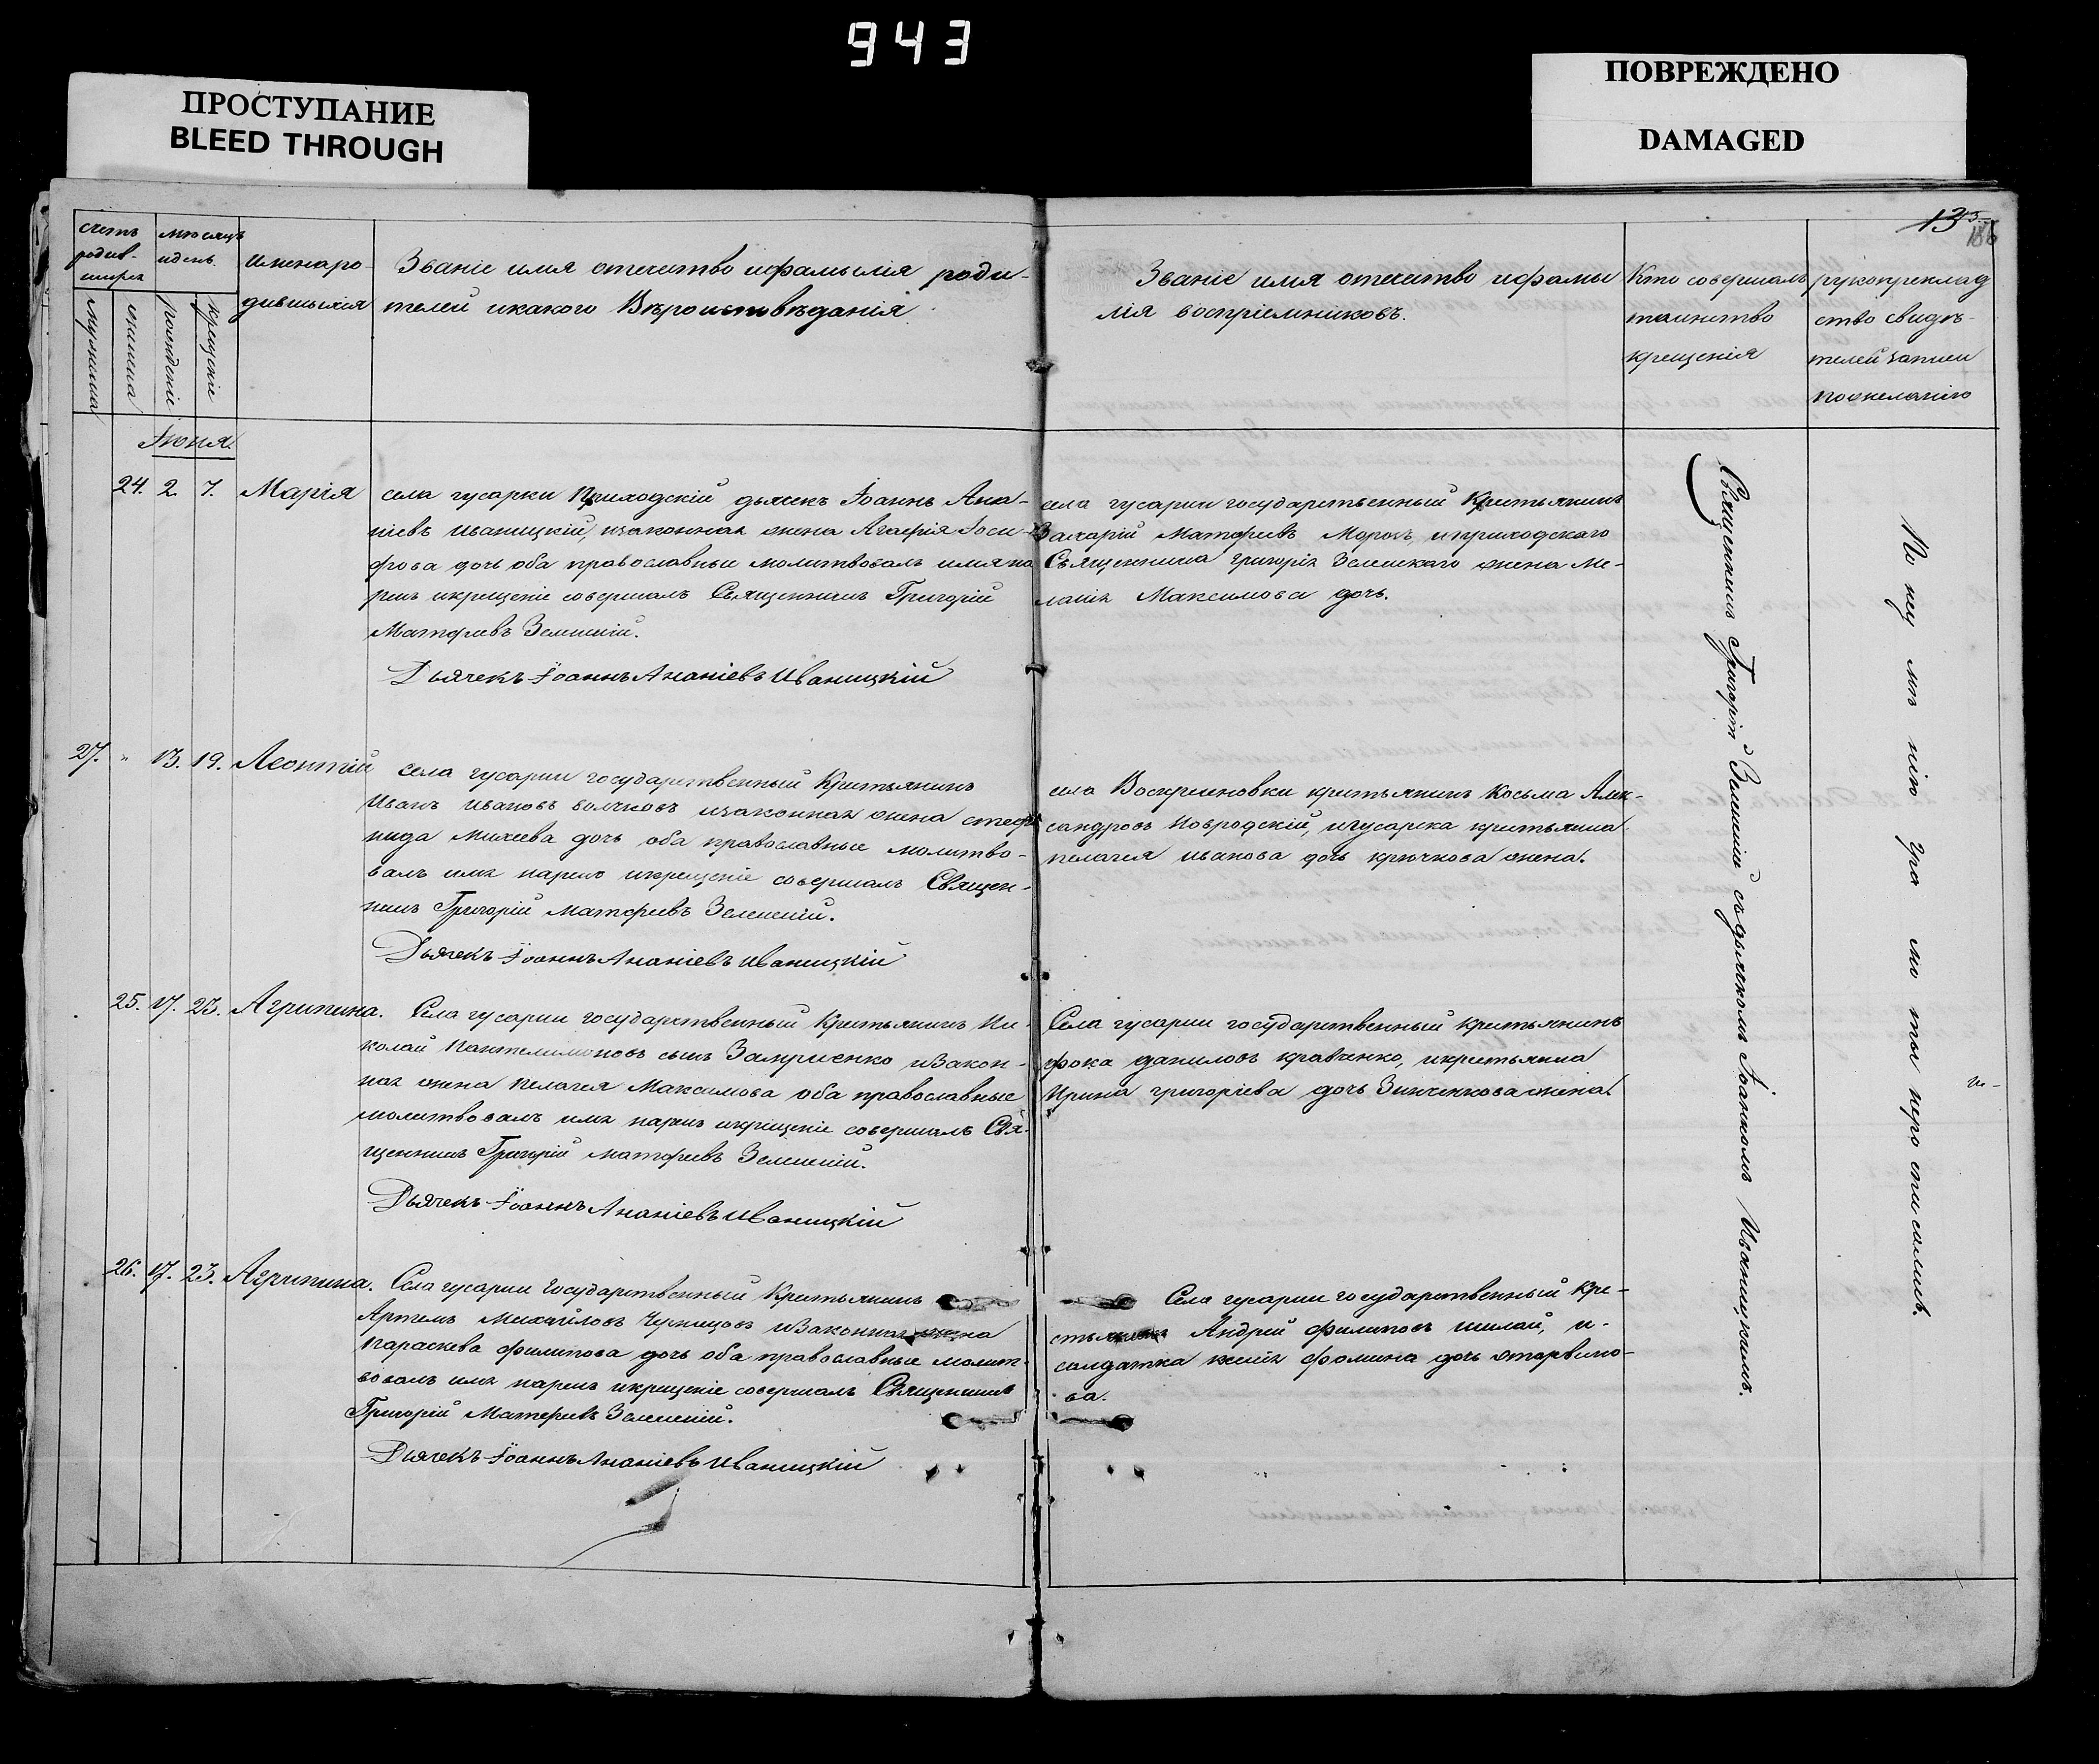 943
ПРОСТУПАНИЕ
BLEED THROUGH
ПОВРЕЖДЕНО
DAMAGED
счетъ родив-шихся
мужеска
женска
мѣсяцъ идень
рожденіе
крещеніе
имена ро-
дившыхся
Званіе имя отечитво ифамылія роди-
телей икакого Вѣроисповѣданія.
Званіе имя отечитво ифамы
лія воспріемниковъ.
Кто совершалъ
таинство
крещенія
рукоприклад
ство свидѣ-
телей записи
пожеланію
Іюня.
24. 2. 7. Марія
села гусарки Приходскій дьячекъ Іоаннъ Ана-
ніевъ иваницкій, изаконная жена Агафія Іоси-
фова дочь оба православные молитвовалъ имяна
рекъ икрещеніе совершалъ Священникъ Григорій
Матфіевъ Зеленскій.
Дьячекъ Іоаннъ Ананіевъ иваницкій
села гусарки государственный Крестьянинъ
Захарій Матфіевъ Морозъ, иприходскаго
Священника григорія Зеленскаго жена Ме-
ланія Максимова дочь.
27. " 13. 19. Леонтій
села гусарки государственный Крестьянинъ
Иванъ ивановъ волчковъ изаконная жена стефа
нида михеева дочь оба православные молитво-
валъ имя нарекъ икрещеніе совершалъ Священ-
никъ Григорій матфіевъ Зеленскій.
Дьячекъ Іоаннъ Ананіевъ иваницкій
села Воскресеновки крестьянинъ Косьма Алек-
сандровъ Новродскій, игусарка крестьянка
пелагея иванова дочь крючкова жена.
25. 17. 23. Агрипина.
Села гусарки государственный Крестьянинъ Ни-
колай Пантелимоновъ сынъ Запрысенко изакон-
ная жена пелагея Максимова оба православные
молитвовалъ имя нарекъ икрещеніе совершалъ Свя-
щенникъ Григорій матфіевъ Зеленскій.
Дьячекъ Іоаннъ Ананіевъ иваницкій
Села гусарки государственный крестьянинъ
фока даниловъ кравченко, икрестьянка
Ирина григоріева дочь Зинченкова жена.
26. 17. 23. Агрипина.
Села гусарки государственный Крестьянинъ
Артемъ михайловъ Чернецовъ изаконная жена
параскева филипова дочь оба православные молит-
вовалъ имя нарекъ икрещеніе совершалъ Священникъ
Григорій Матфіевъ Зеленскій.
Дьячекъ Іоаннъ Ананіевъ иваницкій
Села гусарки государственный кре-
стьянинъ Андрей филиповъ шилай, и-
солдатка фомина дочь
ва.
Священникъ Григорій Зеленскій съ дьячкомъ Іоанномъ Иваницкимъ.
По неу мѣ нію гра мо ты неро спи сались.